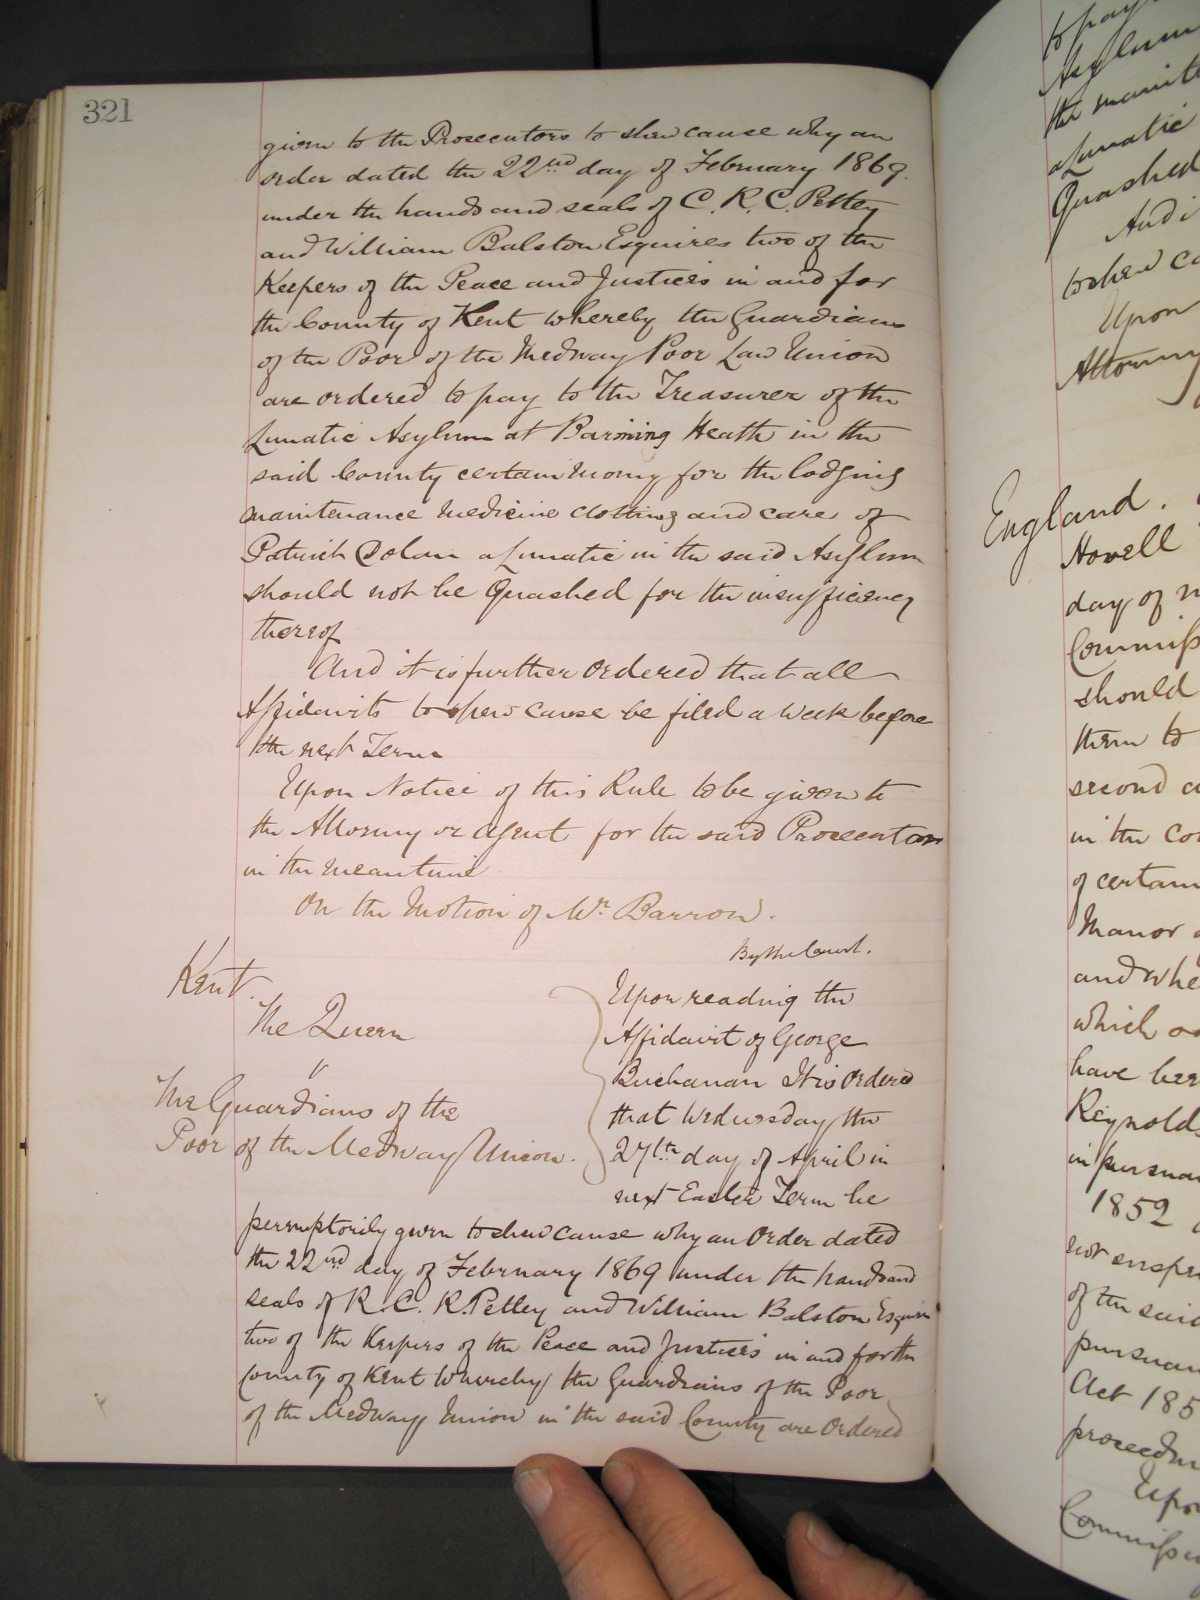 321
given to the Prosecutors to shew cause why an
order dated the 22nd day of February 1869.
under the hands and seals of C. R. C. Petley
and William Balston Esquires two of the
Keepers of the Peace and Justices in and for
the County of Kent whereby the Guardians
of the Poor of the Medway Poor Law Union
are ordered to pay to the Treasurer of the
Lunatic Asylum at Barming Heath in the
said County certain money for the lodging
maintenance medicine clothing and care of
Patrick Dolan a Lunatic in the said Asylum
should not be Quashed for the insufficiency
thereof
And it is further Ordered that all
Affidavits to shew cause be filed a week before
the next Term
Upon Notice of this Rule to be given to
the Attorney or Agent for the said Prosecutors
in the meantime
On the Motion of Mr. Barrow.
By the Court.
Kent.
The Queen
v
The Guardians of the
Poor of the Medway Union.
Upon reading the
Affidavit of George
Buchanan It is Ordered
that Wednesday the
27th day of April in
next Easter Term be
peremptorily given to shew cause why an Order dated
the 22nd day of February 1869 under the hands and
seals of R. C. R. Petley and William Balston Esquires
two of the Keepers of the Peace and Justices in and for the
County of Kent whereby the Guardians of the Poor
of the Medway Union in the said County are Ordered
to pay
Asylum
the
a Lunatic
Quashed
And i
to shew ca
Upon
Attorney
England.
Hovell
day of
Commiss
should
them to
second
in the
of certain
Manor
and whe
which
have been
Reynolds
in pursua
1852
not
of the said
pursuan
Act 185
proceedin
Upon
Commiss